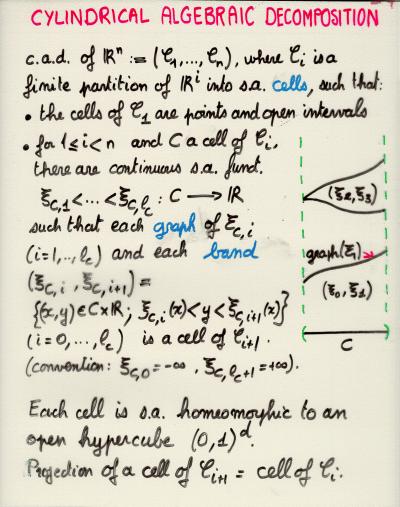 CYLINDRICAL ALGEBRAIC DECOMPOSITION
c.a.d. of ℝⁿ := (𝒞₁,...,𝒞ₙ), where 𝒞ᵢ is a
finite partition of ℝⁱ into s.a. cells, such that:
• the cells of 𝒞₁ are points and open intervals
• for 1≤i<n and C a cell of 𝒞ᵢ,
there are continuous s.a. funct.
ξ_{C,1} <...< ξ_{C,ℓ_C} : C ⟶ ℝ
such that each graph of ξ_{C,i}
(i=1,..,ℓ_C) and each band
(ξ_{C,i}, ξ_{C,i+1}) =
{(x,y)∈C×ℝ ; ξ_{C,i}(x)<y<ξ_{C,i+1}(x)}
(i=0,...,ℓ_C) is a cell of 𝒞ᵢ₊₁.
(convention: ξ_{C,0}=-∞, ξ_{C,ℓ_C+1}=+∞).
(ξ₂,ξ₃)
graph(ξ₁)
(ξ₀,ξ₁)
C
Each cell is s.a. homeomorphic to an
open hypercube (0,1)ᵈ.
Projection of a cell of 𝒞ᵢ₊₁ = cell of 𝒞ᵢ.